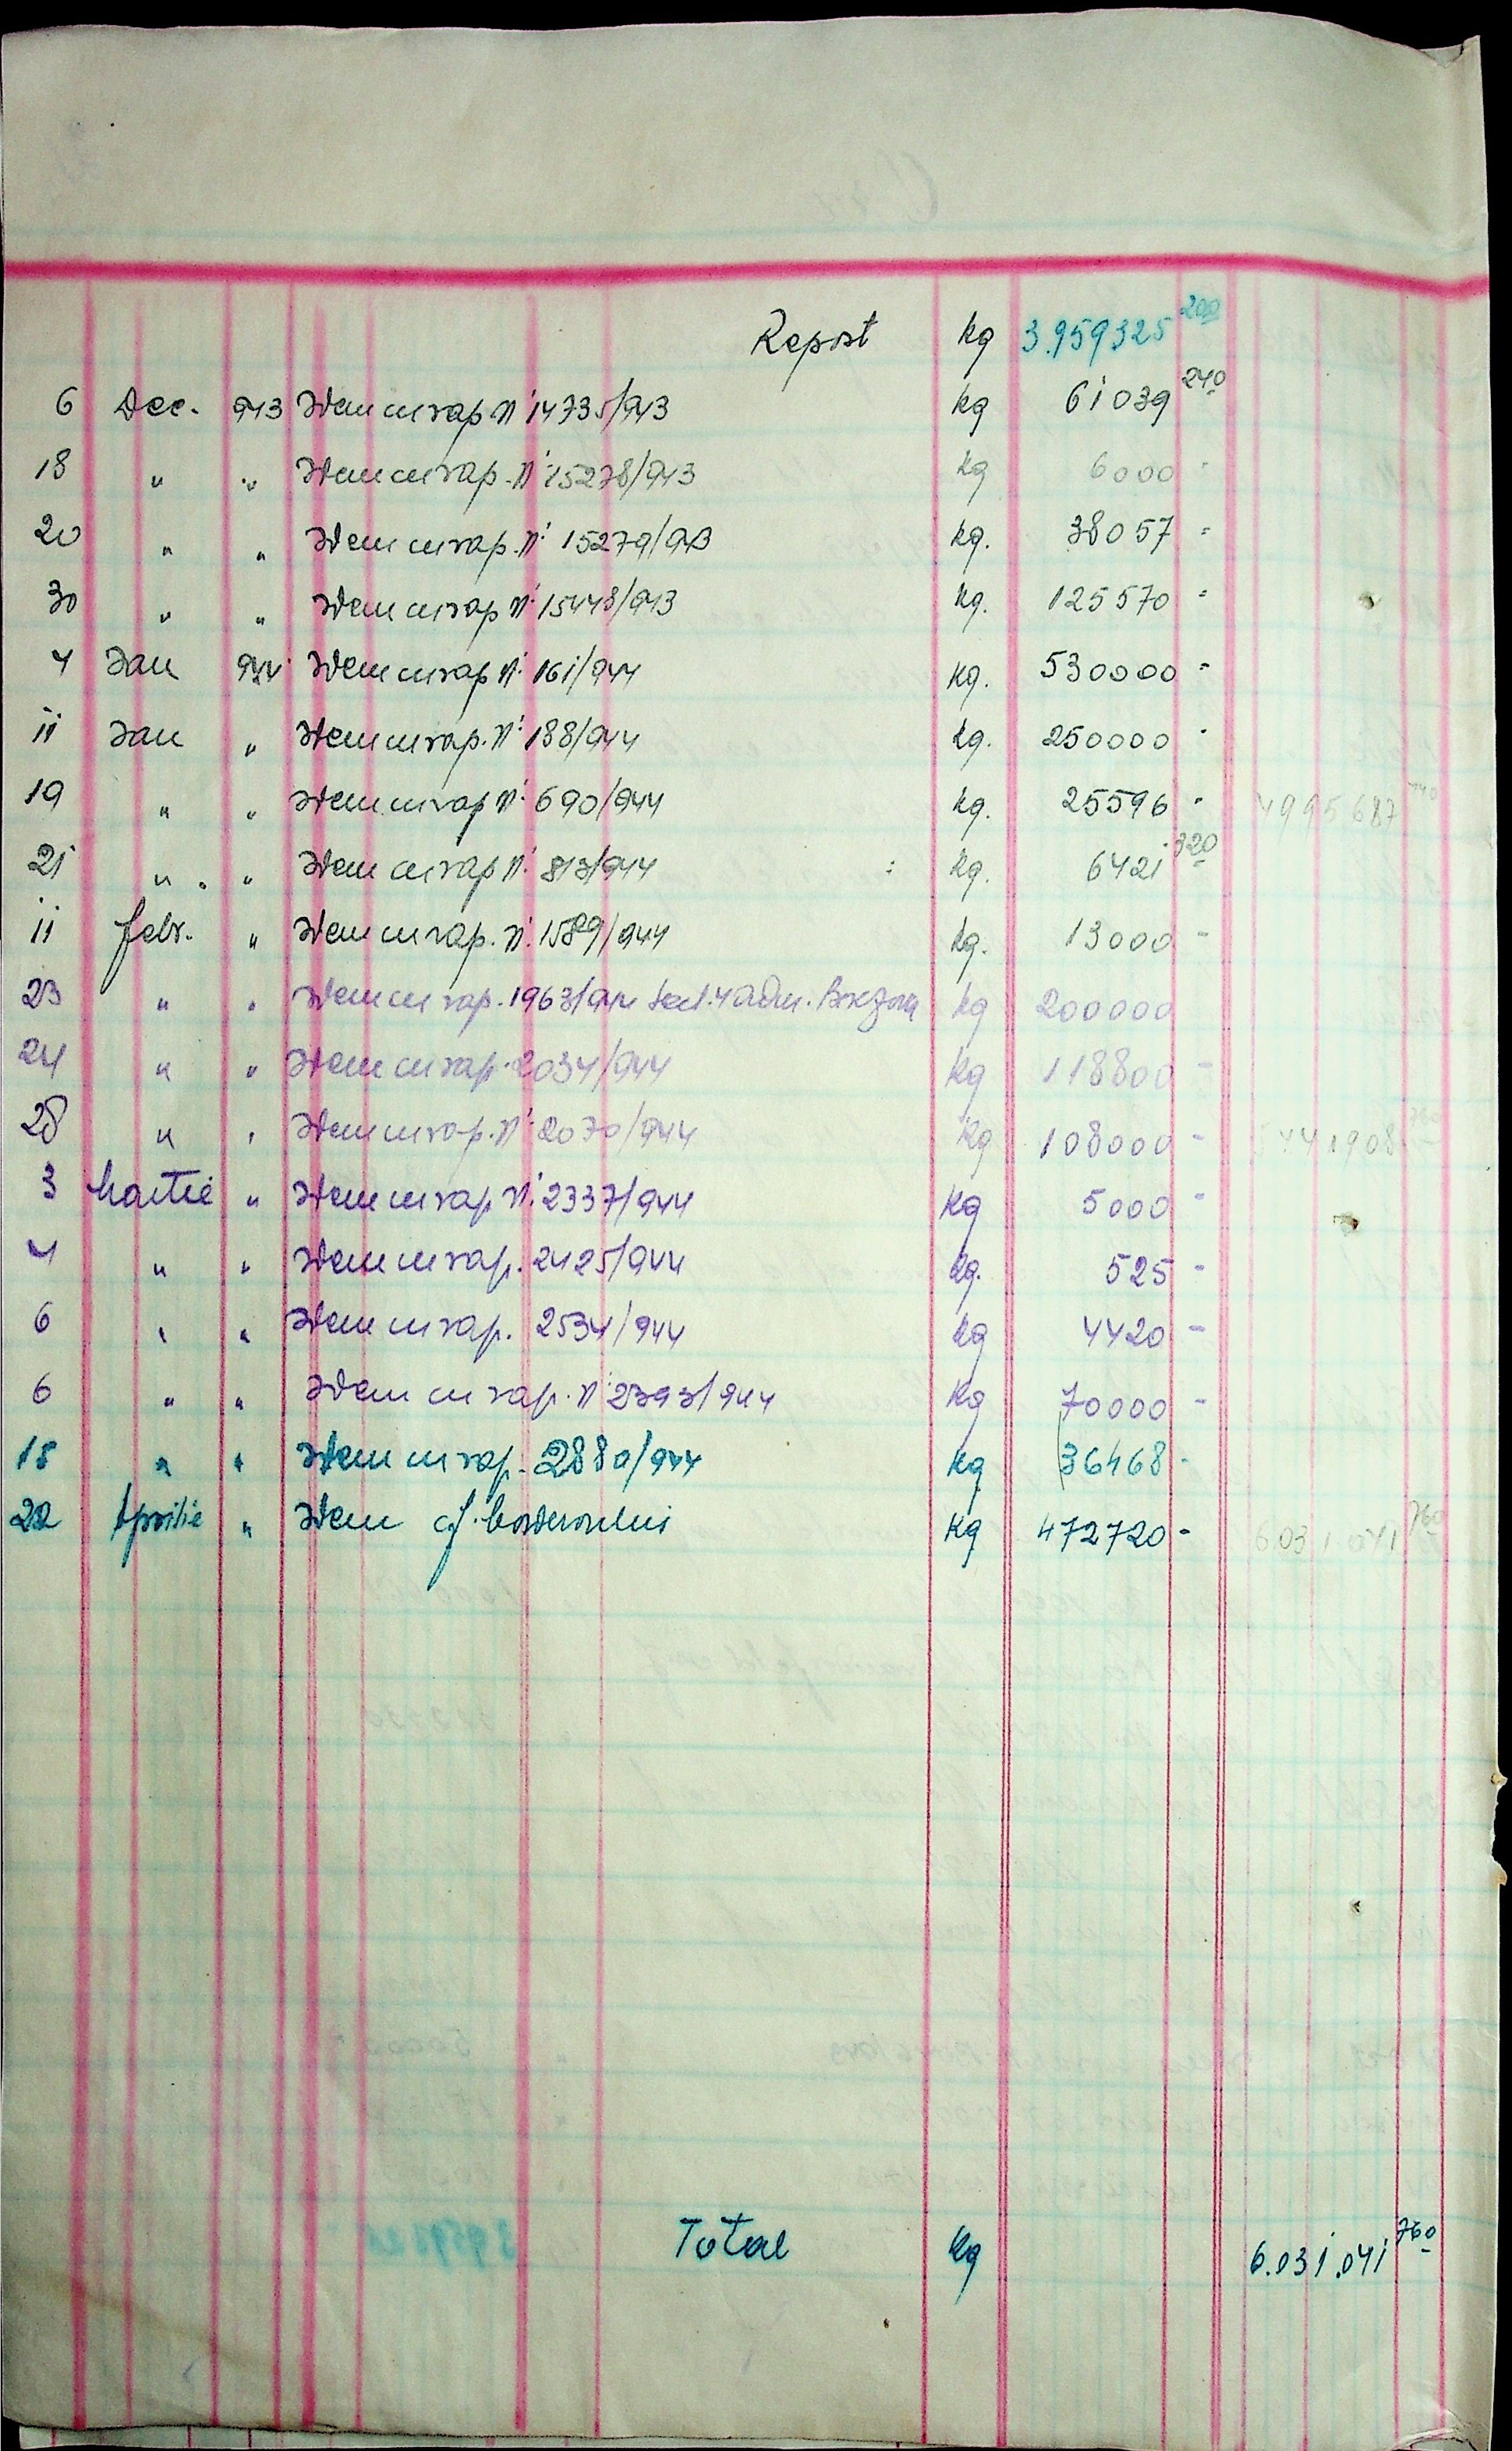 Report kg 3.959325 200
6 Dec. 943 Idem cu rap Nº 14735/943 kg 61039 240
18 " " Idem cu rap. Nº 15278/943 kg 6000 -
20 " " Idem cu rap. Nº 15279/943 kg. 38057 -
30 " " Idem cu rap Nº 15448/943 kg. 125570 -
4 Ian 944 Idem cu rap Nº 161/944 kg. 530000 -
11 Ian " Idem cu rap. Nº 188/944 kg. 250000 -
19 " " Idem cu rap Nº 690/944 kg. 25596 - 4995687
21 " " Idem cu rap Nº 813/944 kg. 6421 320
11 febr. " Idem cu rap. Nº 1589/944 kg. 13000 -
23 " " Idem cu rap. 1963/944 kg 200000
24 " " Idem cu rap. 2034/944 kg 118800 -
28 " " Idem cu rap. Nº 2070/944 kg 108000 - 5441908 760
3 Martie " Idem cu rap Nº 2337/944 kg 5000 -
4 " " Idem cu rap. 2425/944 kg. 525 -
6 " " Idem cu rap. 2534/944 kg 4420 -
6 " " Idem cu rap. Nº 2393/944 kg 70000 -
15 " " Idem cu rap. 2880/944 kg 36468 -
22 Aprilie " Idem cf. borderoului kg 472720 - 6.031.041 760
Total kg 6.031.041 760